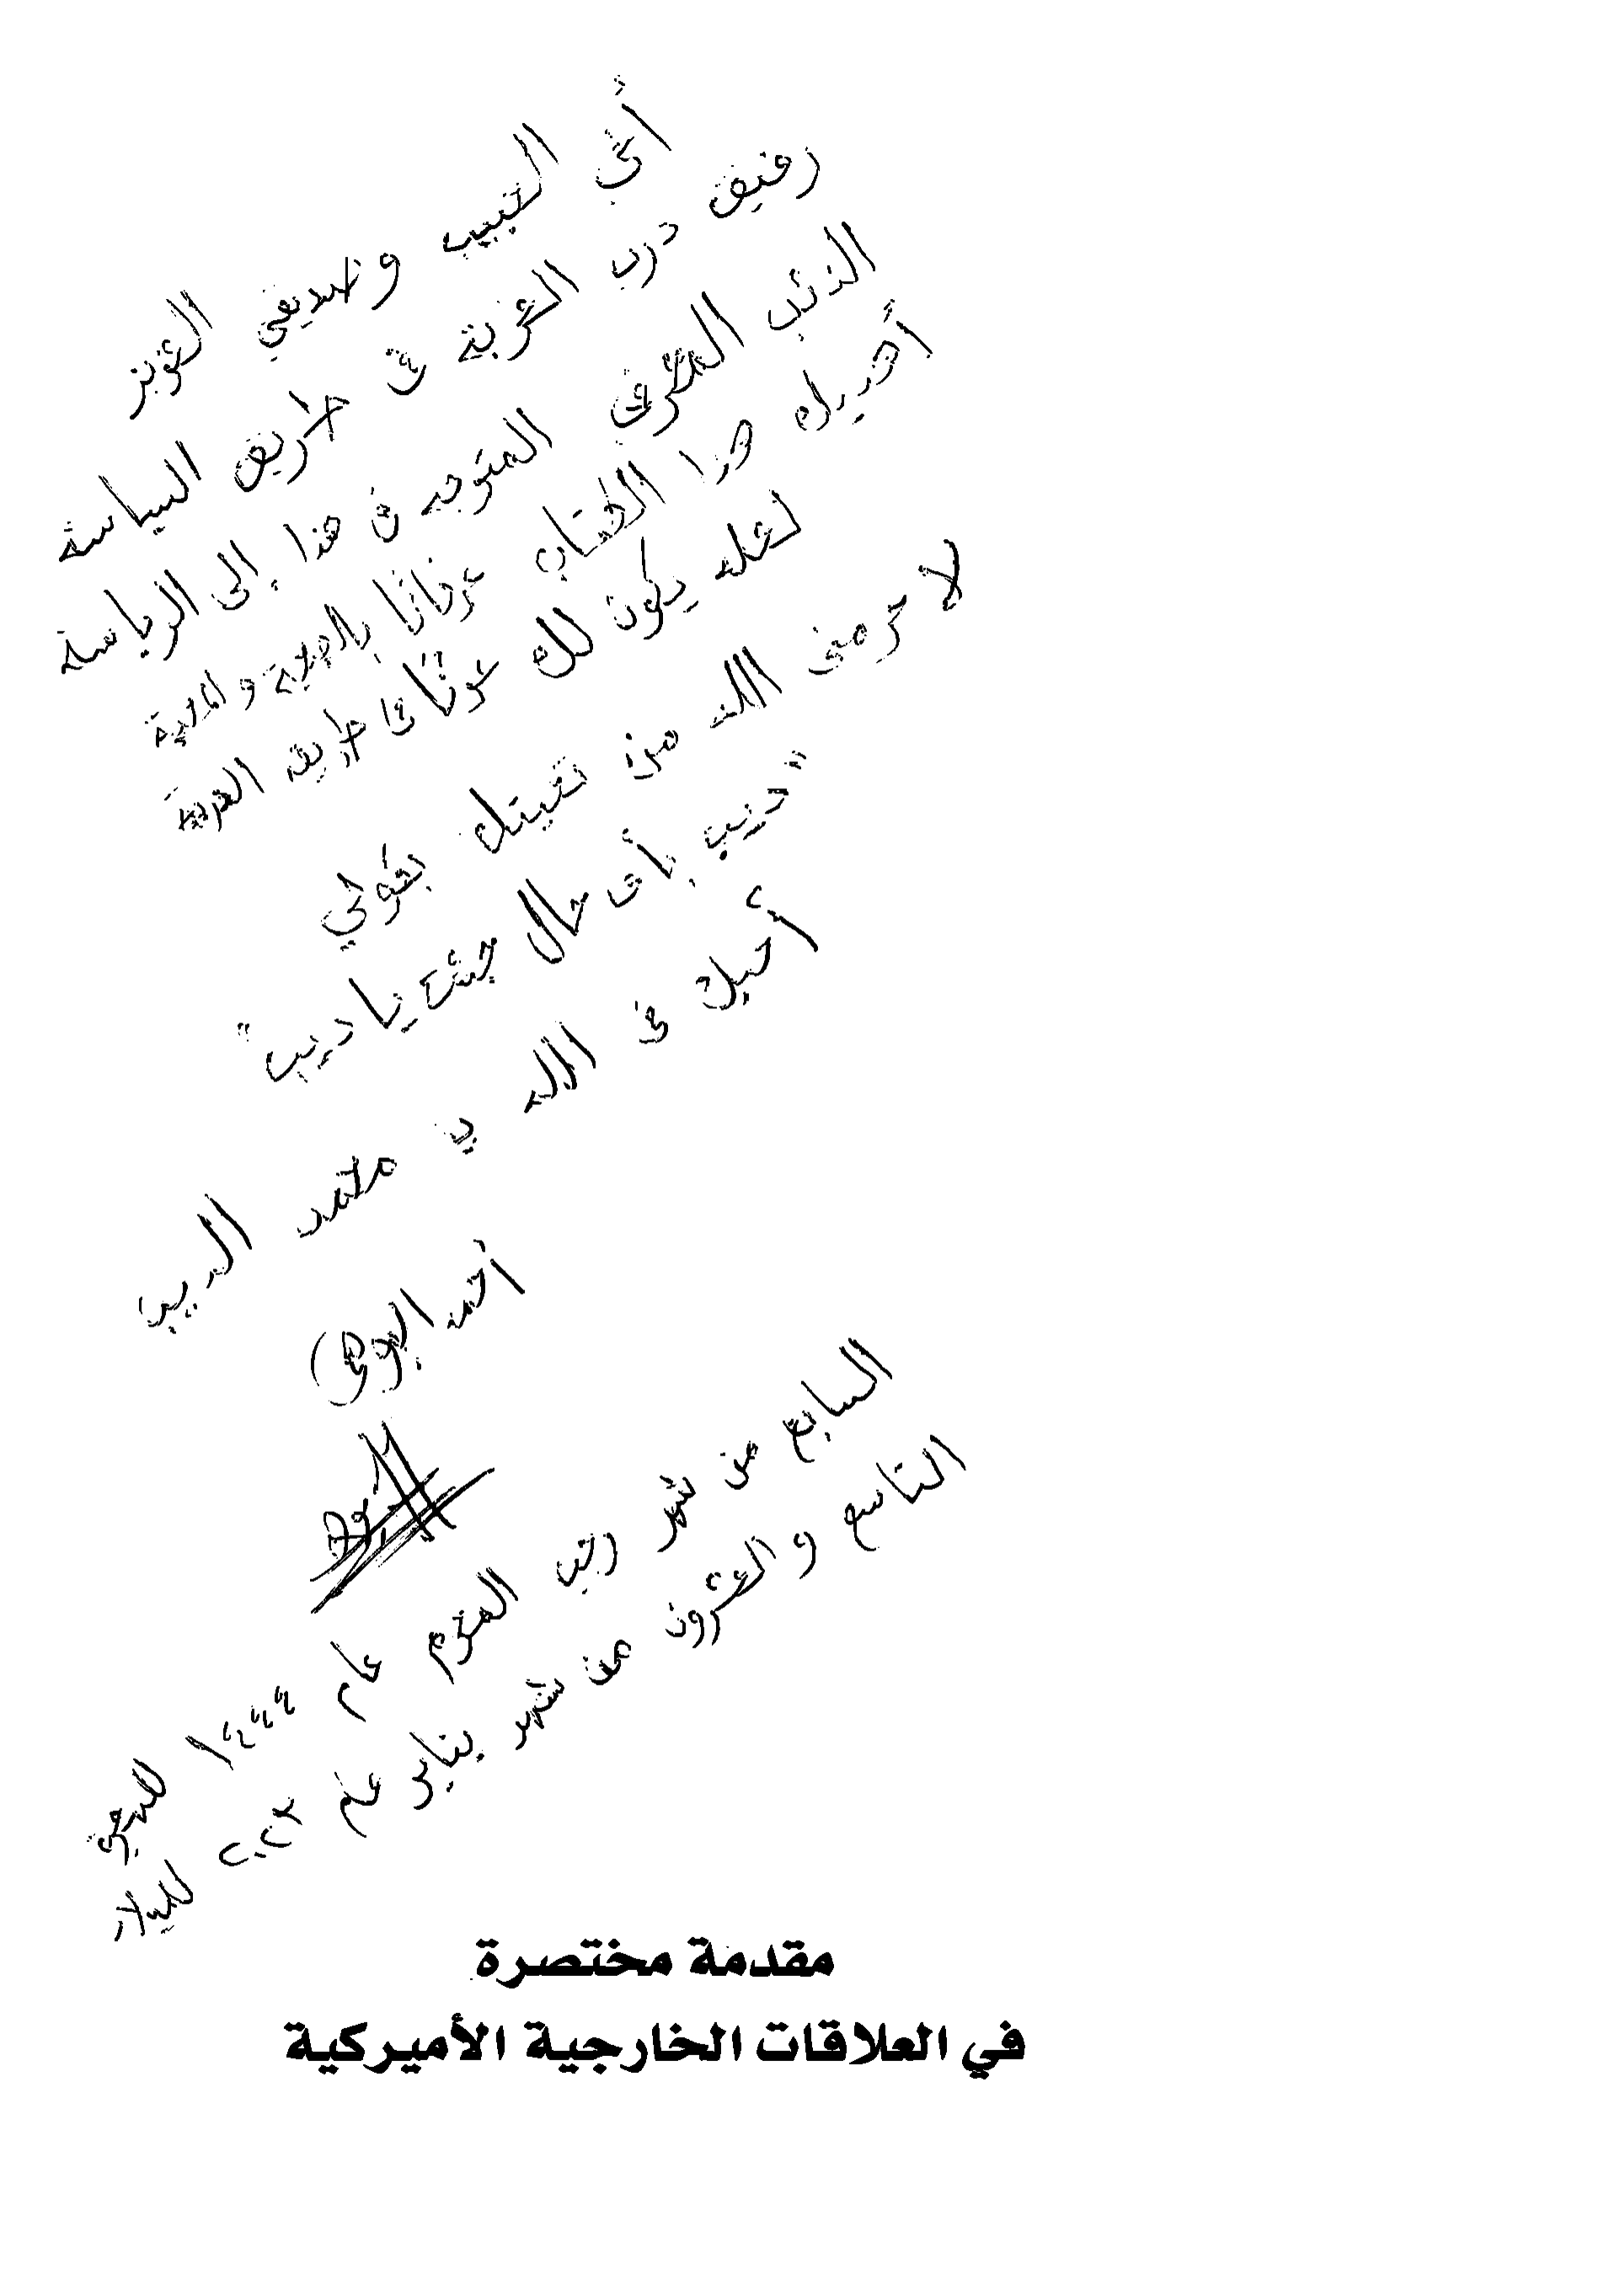 أخي الحبيب وصديقي العزيز
رفيق درب الغربة في طريق السياسة
الذئب المتوجه في هذا إلى الرياسة
أهديك هذا الكتاب عرفانًا بالصحبة والمحبة
لعله يكون لك عونًا في طريق الغربة
لا حرمني الله من تحيتك بقولي
"ديب بأى حال جئت يا ديب"
أحبك في الله يا محمد الديب
أحمد
السابع من شهر رجب المحرم عام ١٤٤٤ للهجرة
التاسع والعشرون من شهر يناير عام ٢٠٢٣ للميلاد
مقدمة مختصرة
في العلاقات الخارجية الأميركية